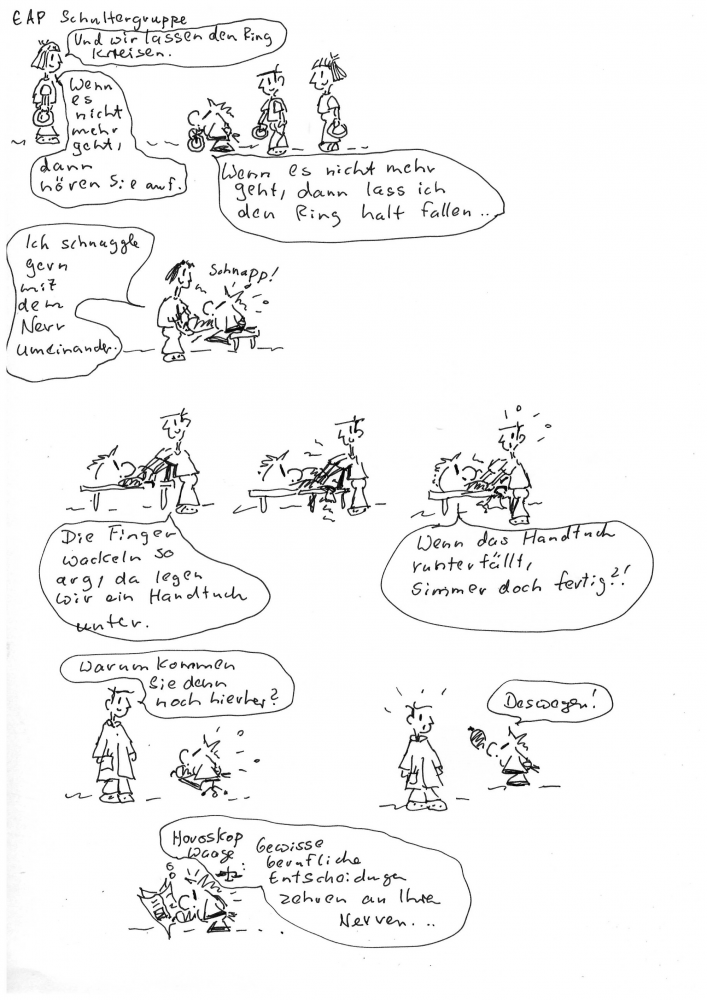 EAP Schultergruppe
Und wir lassen den Ring
kreisen.
Wenn
es
nicht
mehr
geht,
dann
hören Sie auf.
Wenn es nicht mehr
geht, dann lass ich
den Ring halt fallen...
Ich schnaggle
gern
mit
dem
Nerv
umeinander.
Schnapp!
Die Finger
wackeln so
arg, da legen
wir ein Handtuch
unter.
Wenn das Handtuch
runterfällt,
simmer doch fertig?!
Warum kommen
Sie denn
noch hierher?
Deswegen!
Horoskop
Waage :
Gewisse
berufliche
Entscheidungen
zehren an Ihren
Nerven...